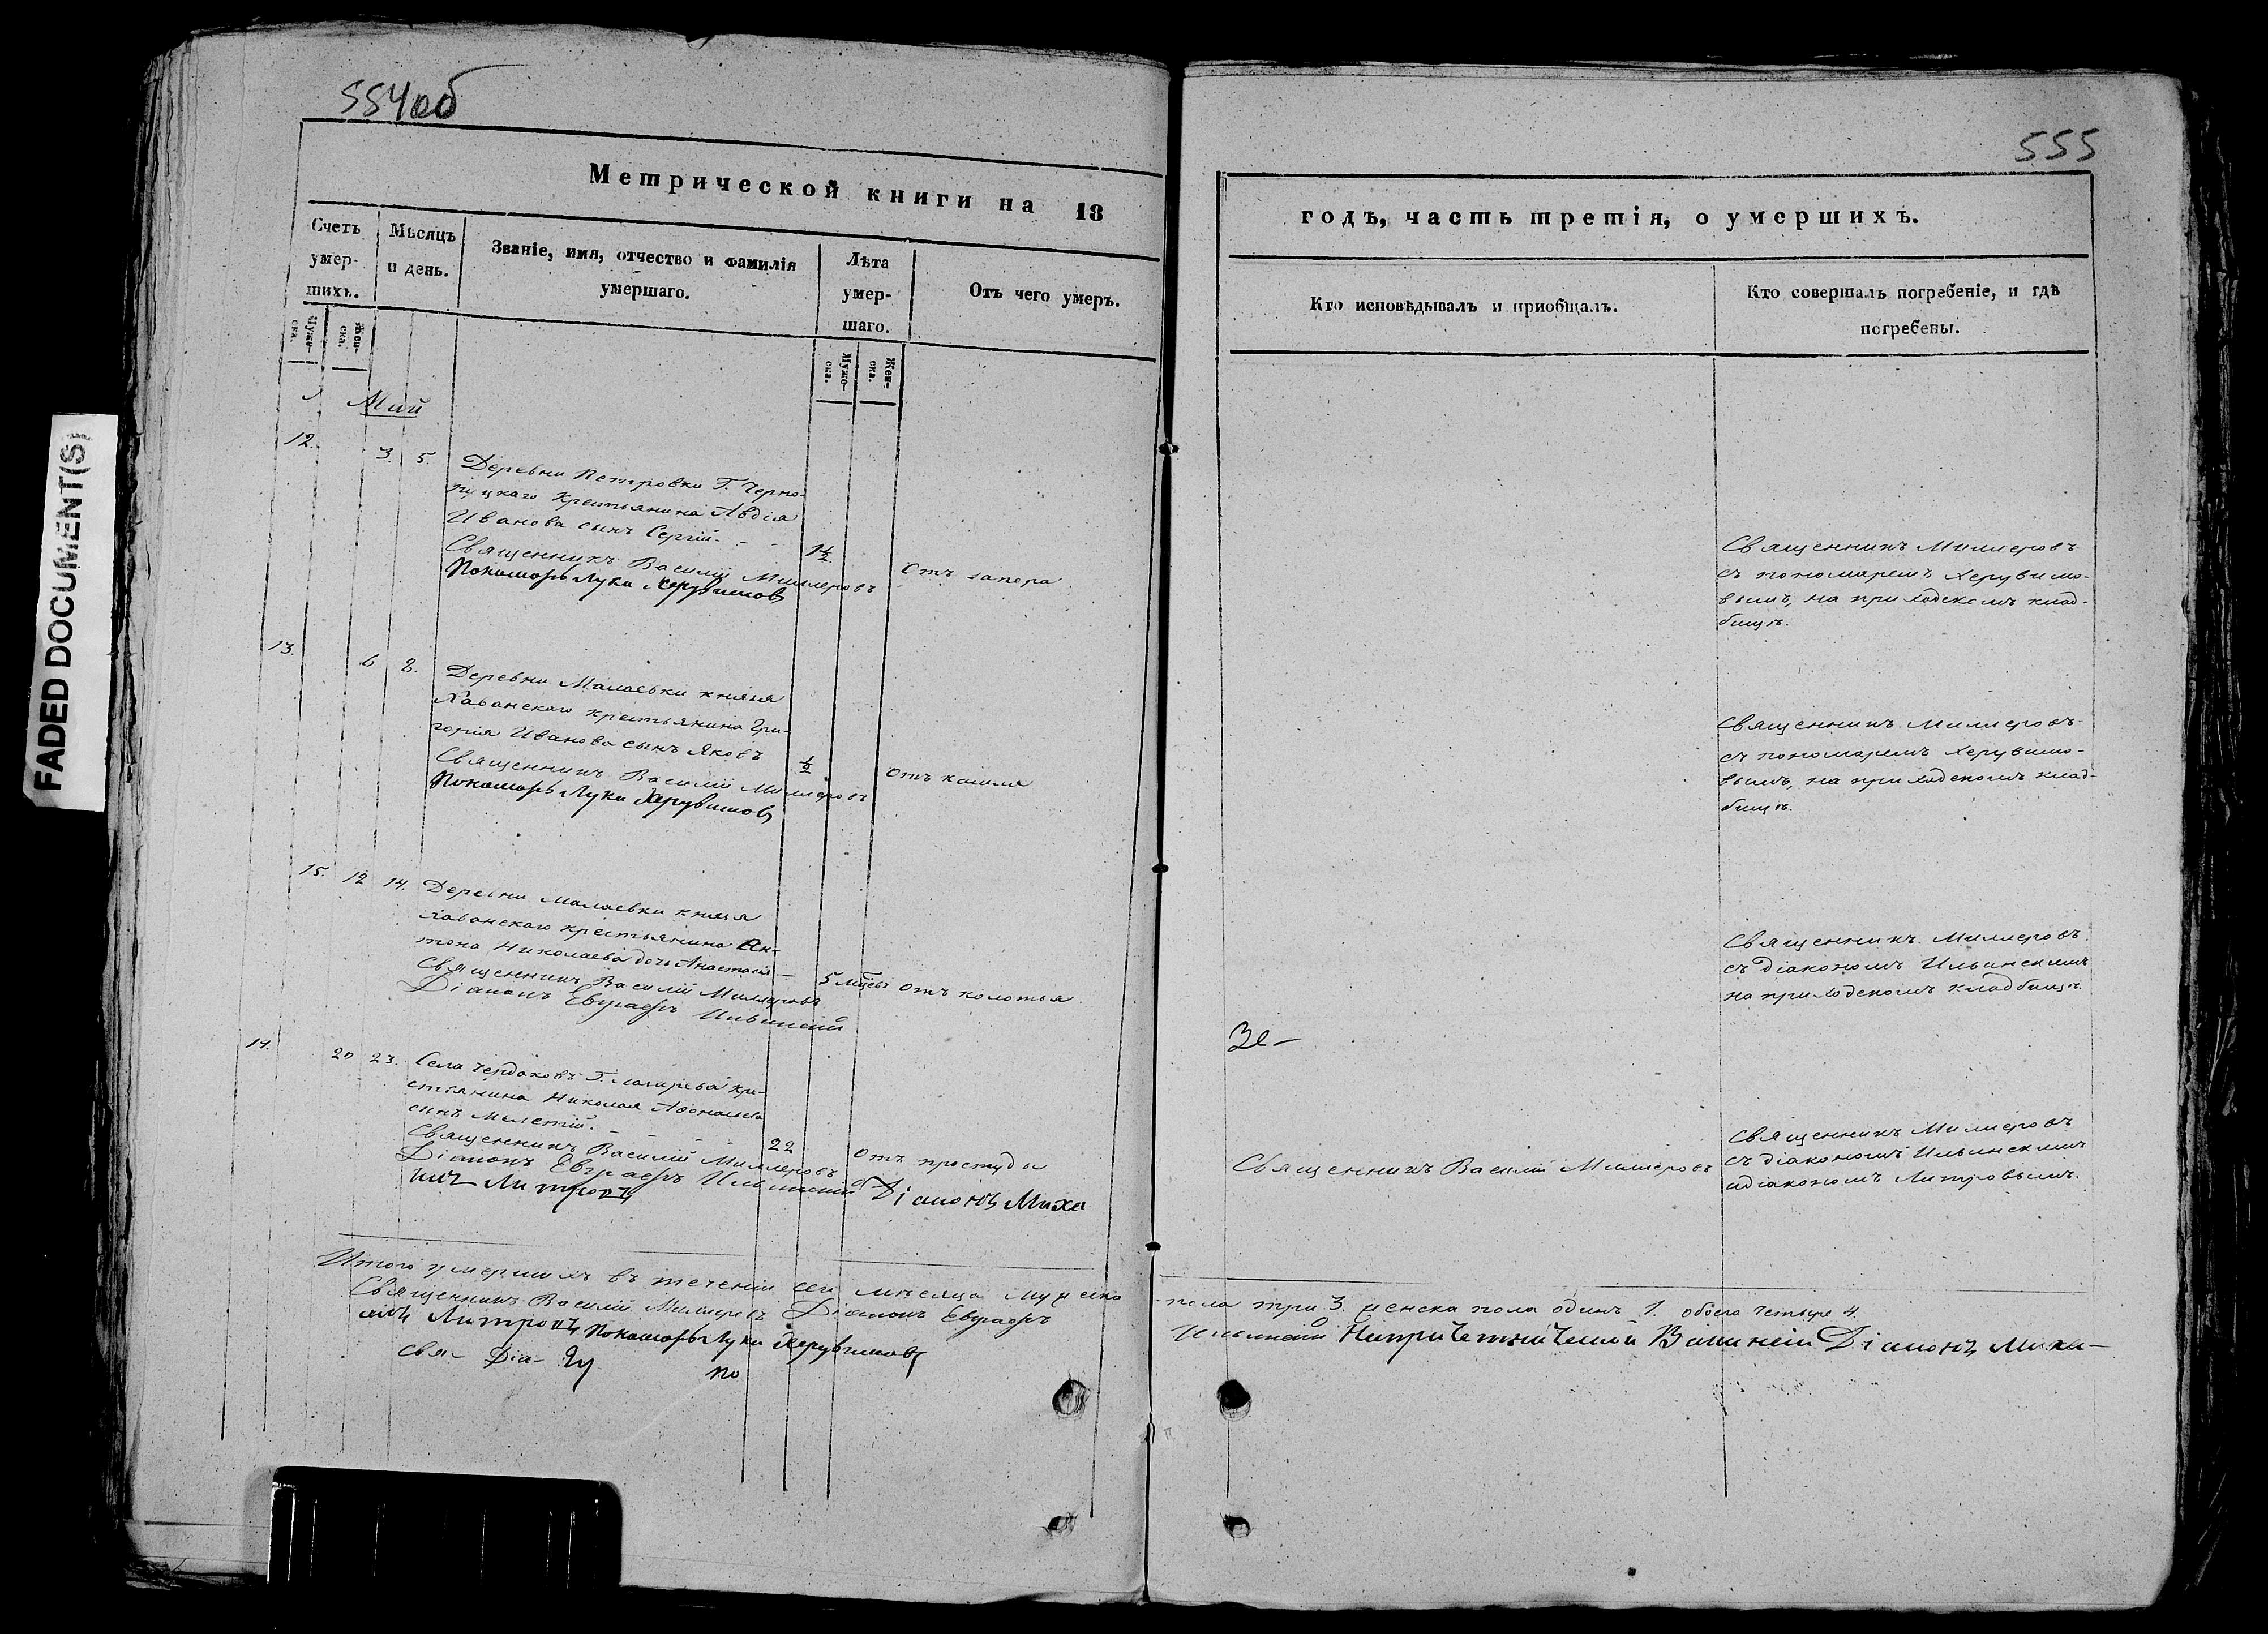 554об
555
FADED DOCUMENT(S)
Метрической книги на 18
годъ, часть третія, о умершихъ.
Счетъ умер-шихъ.
Мѣсяцъ и день.
Званіе, имя, отчество и фамилія
умершаго.
Лѣта умер-шаго.
Отъ чего умеръ.
Кто исповѣдывалъ и приобщалъ.
Кто совершалъ погребеніе, и гдѣ
погребены.
Муже-ска.
Жен-ска.
Муже-ска.
Жен-ска.
Май
12. 3. 5.
Деревни Петровки Г. Черно-
крестьянина Авдія
Иванова сынъ Сергій.
1½
Отъ запора
Священникъ Василій Миллеровъ
Пономарь Лука Херувимовъ
Священникъ Миллеровъ
съ пономаремъ Херувимо-
вымъ, на приходскомъ клад-
бищѣ.
13. 6 8.
Деревни Малаевки князя
Хованскаго крестьянина Гри-
горія Иванова сынъ Яковъ
½
Отъ кашля
Священникъ Василій Миллеровъ
Пономарь Лука Херувимовъ
Священникъ Миллеровъ
съ пономаремъ Херувимо-
вымъ, на приходскомъ клад-
бищѣ.
15. 12 14.
Деревни Малаевки князя
Хованскаго крестьянина Ан-
тона Николаева дочь Анастасія
5 мѣсяц.
Отъ колотья
Священникъ Василій Миллеровъ
Діаконъ Евграфъ Ильинскій
Священникъ Миллеровъ
съ діакономъ Ильинскимъ
на приходскомъ кладбищѣ.
14. 20 23.
Села Чердаковъ Г. кре-
стьянина Николая Афонасьева
сынъ Мелетій.
22
Отъ простуды
Священникъ Василій Миллеровъ
Діаконъ Евграфъ Ильинскій
Діаконъ Миха
илъ Митровъ
Священникъ Василій Миллеровъ
Священникъ Миллеровъ
съ діакономъ Ильинскимъ
идіакономъ Митровымъ.
Итого умершихъ въ теченіи сего мѣсяца мужеска
пола три 3. женска пола одинъ 1. обоего четыре 4.
Священникъ Василій Миллеровъ Діаконъ Евграфъ
Ильинскій Діаконъ Миха-
илъ Митровъ Пономарь Лука Херувимовъ
Свя- Діа-
по